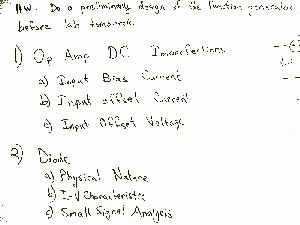 H.W. Do a preliminary design of the function generator
before lab tomorrow.
1) Op Amp DC Imperfections
a) Input Bias Current
b) Input offset Current
c) Input Offset Voltage
2) Diode
a) Physical Nature
b) I-V Characteristics
c) Small Signal Analysis